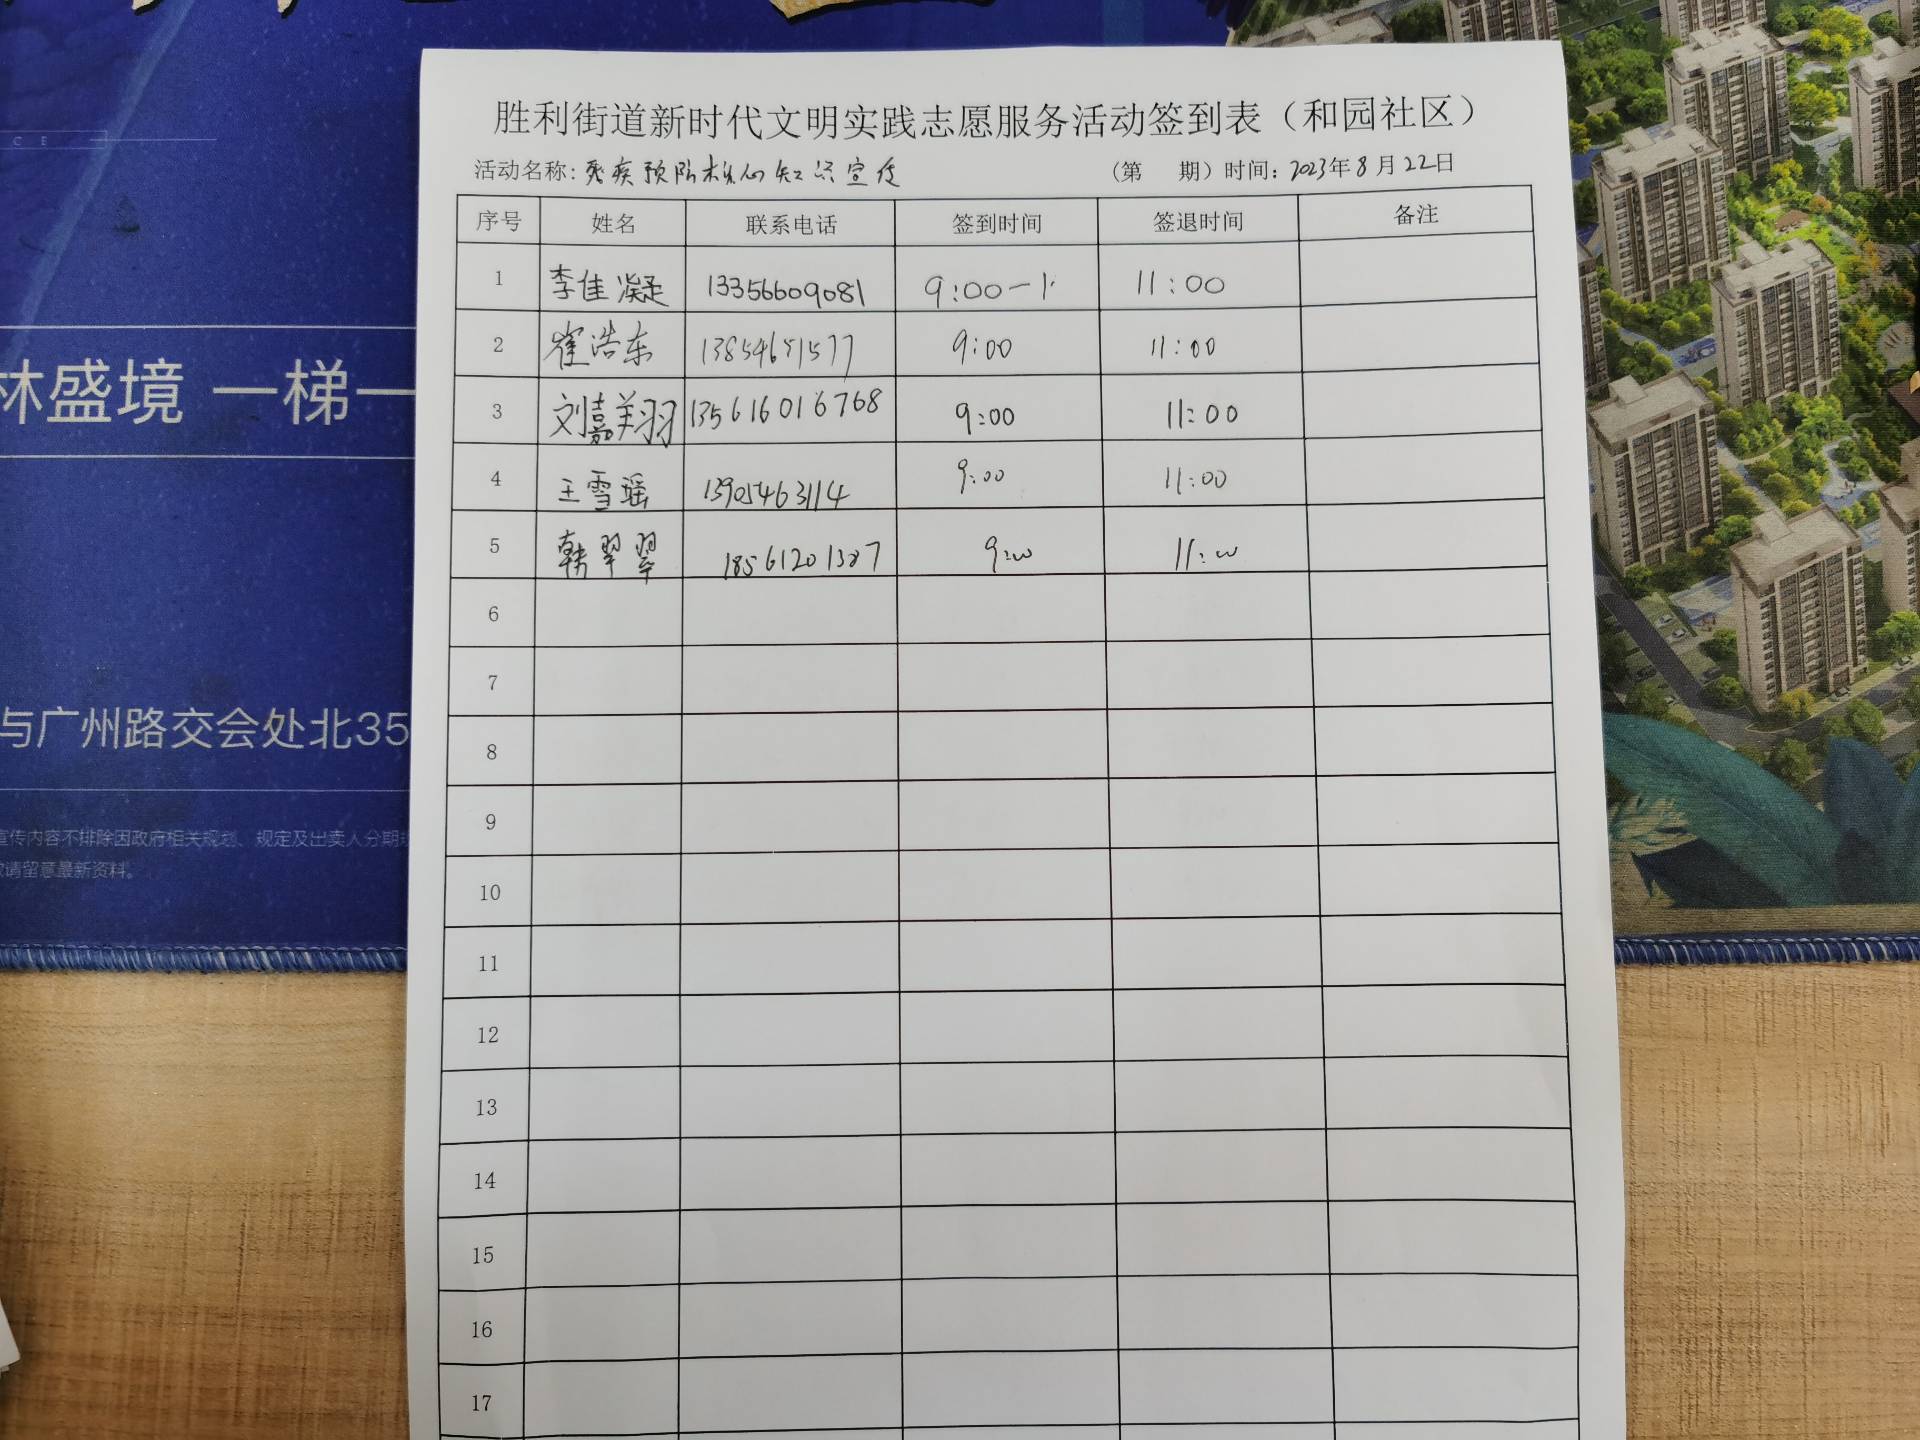 胜利街道新时代文明实践志愿服务活动签到表（和园社区）
活动名称：残疾预防核心知识宣传 （第 期）时间：2023年8月22日
序号 姓名 联系电话 签到时间 签退时间 备注
1 李佳凝 13356609081 9:00-1 11:00
2 崔浩东 13854691577 9:00 11:00
3 刘嘉翔 135616016768 9:00 11:00
4 王雪瑶 13905463114 9:00 11:00
5 韩翠翠 18561201387 9:00 11:00
6
7
8
9
10
11
12
13
14
15
16
17
CE
林盛境 一梯一
与广州路交会处北35
宣传内容不排除因政府相关规划、规定及出卖人分期
敬请留意最新资料。